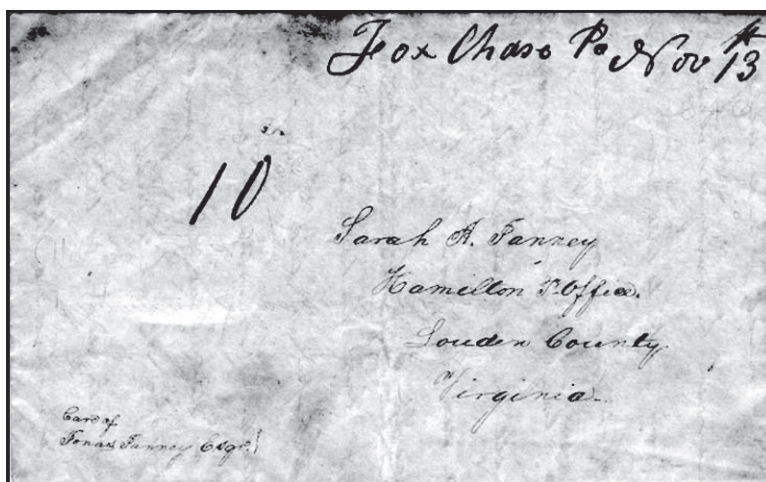 Fox Chase Pa Nov 13th
10
Sarah A. Janney
Hamilton P. Office.
Louden County
Virginia.
Care of
Jonas Janney Esqr.